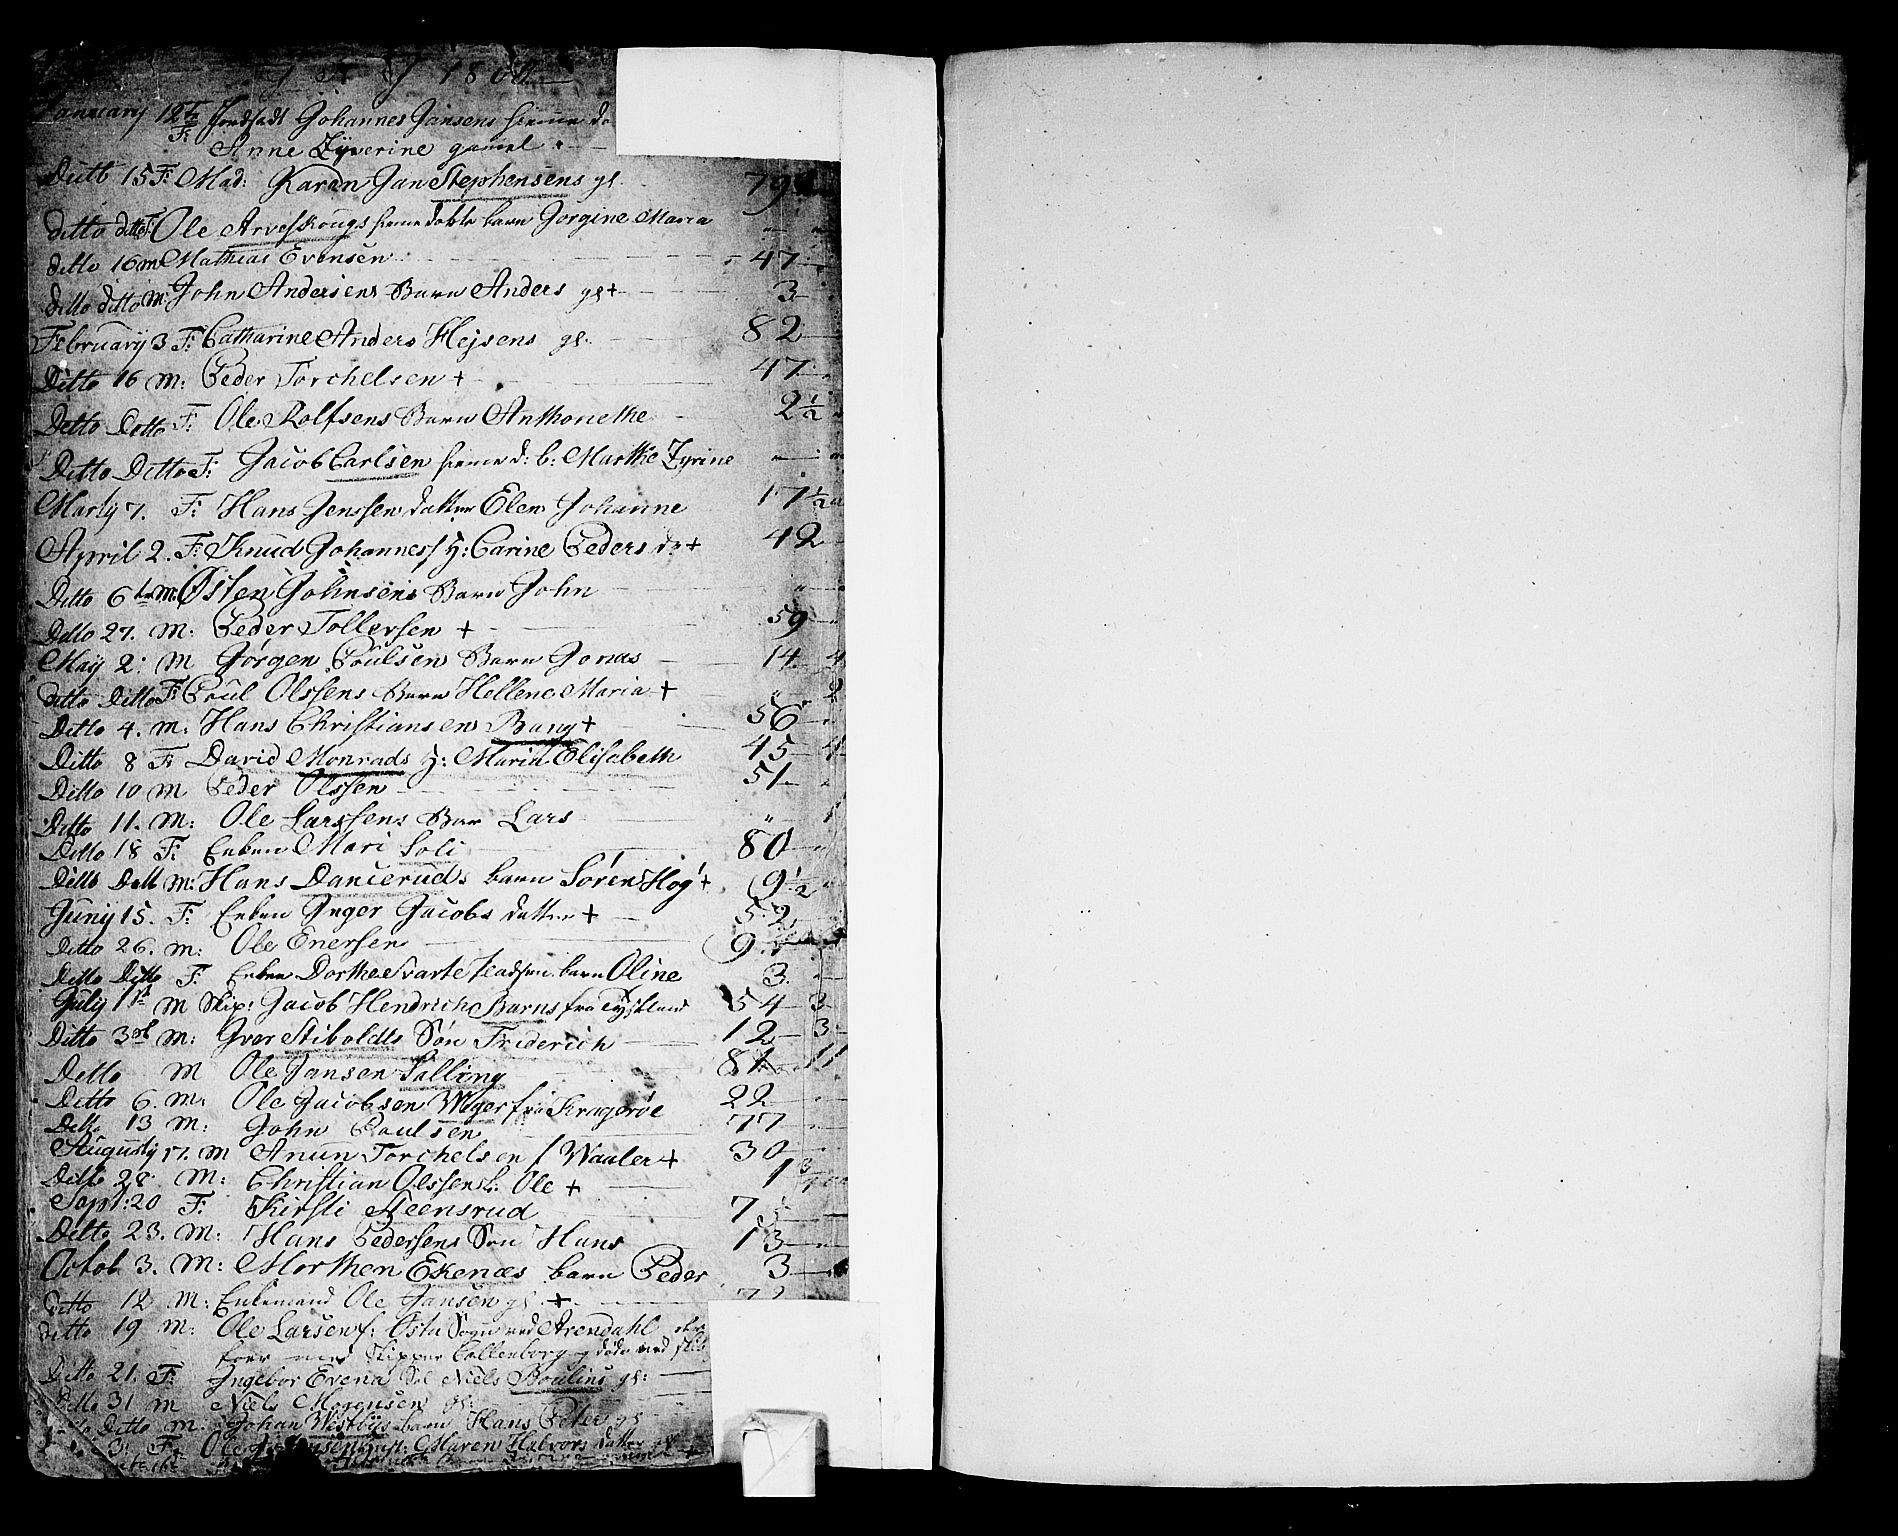 1800
January 12te Jordfæst Johannes Jansens hiemme do
F: Anne Zyverine gamel
Ditto 15 F: Mad: Karen Jan Stephensens gl. 79
ditto ditto F: Ole Arveskougs hiemme døbte barn Jorgine Maria
ditto 16 m Mathias Evensen 47
ditto ditto M: John Andersens Barn Anders gl + 3
February 3 F: Catharine Anders Hejsens gl. 82
Ditto 16 M: Peder Torchelsen + 47
Ditto Ditto F: Ole Rolfsens Barn Anthonethe 2 1/2
Ditto Ditto F: Jacob Carlsen hiemme d: b: Marthe Zyrine
Martij 7. F: Hans Jenssen datter Elen Johanne 17 1/2
April 2. F: Knud Johanness H: Carine Peders d: + 42
Ditto 6te M: Østen Johnsens Barn John
Ditto 27. M: Peder Tollersen + 59
Maij 2: M Jørgen Poulsens Barn Jonas 14 4
ditto Ditto F: Poul Olssens Barn Hellene Maria + 2
Ditto 4. m: Hans Christiansen Bang + 56
Ditto 8 F: David Monrads H: Maria Elisabeth 45 4
Ditto 10 M Peder Olssen 51
Ditto 11. M: Ole Larssens Bar Lars
Ditto 18 F: Enken Mari Soli 80
Ditto Ditto M: Hans Danceruds barn Søren Høg + 9 1/2
Junij 15. F: Enken Inger Jacobs datter + 52
Ditto 26. M: Ole Enersen 9
Ditto Ditto F. Enken Dorthe Svarte barn Oline 3
July 1st M Skip: Jacob Hendrich Barns fra Tyskland 54 3
Ditto 3de M: Iver Stiboldts Søn Friderich 12 3
Ditto M Ole Jansen Salling 81 11
Ditto 6. M: Ole Jacobsen Weyer fra Kragerøe 22
Ditto 13 M: John Paulsen 77
Augustij 17. M Anun Torchelsen Waaler + 30
Ditto 28. M: Christian Olssens b: Ole + 1 3/4
Sept: 20 F: Kirsti Steensrud 7
Ditto 23. M: Hans Pedersens Søn Hans 13
Octob 3. M: Morthen Ekenæs barn Peder 3
Ditto 12 M: Enkemand Ole Jansen gl + 72
ditto 19 M: Ole Larsen f: Østre Sogn ved Arendahl
foer med Skipper Callenborg og døde ved
Ditto 21. F: Ingebor Evena Niels Boulins gl:
Ditto 31 M Niels Mogensen gl:
Ditto m: Johan Westbys barn Hans Peter gl
3: F: Ole Maren Halvors datter